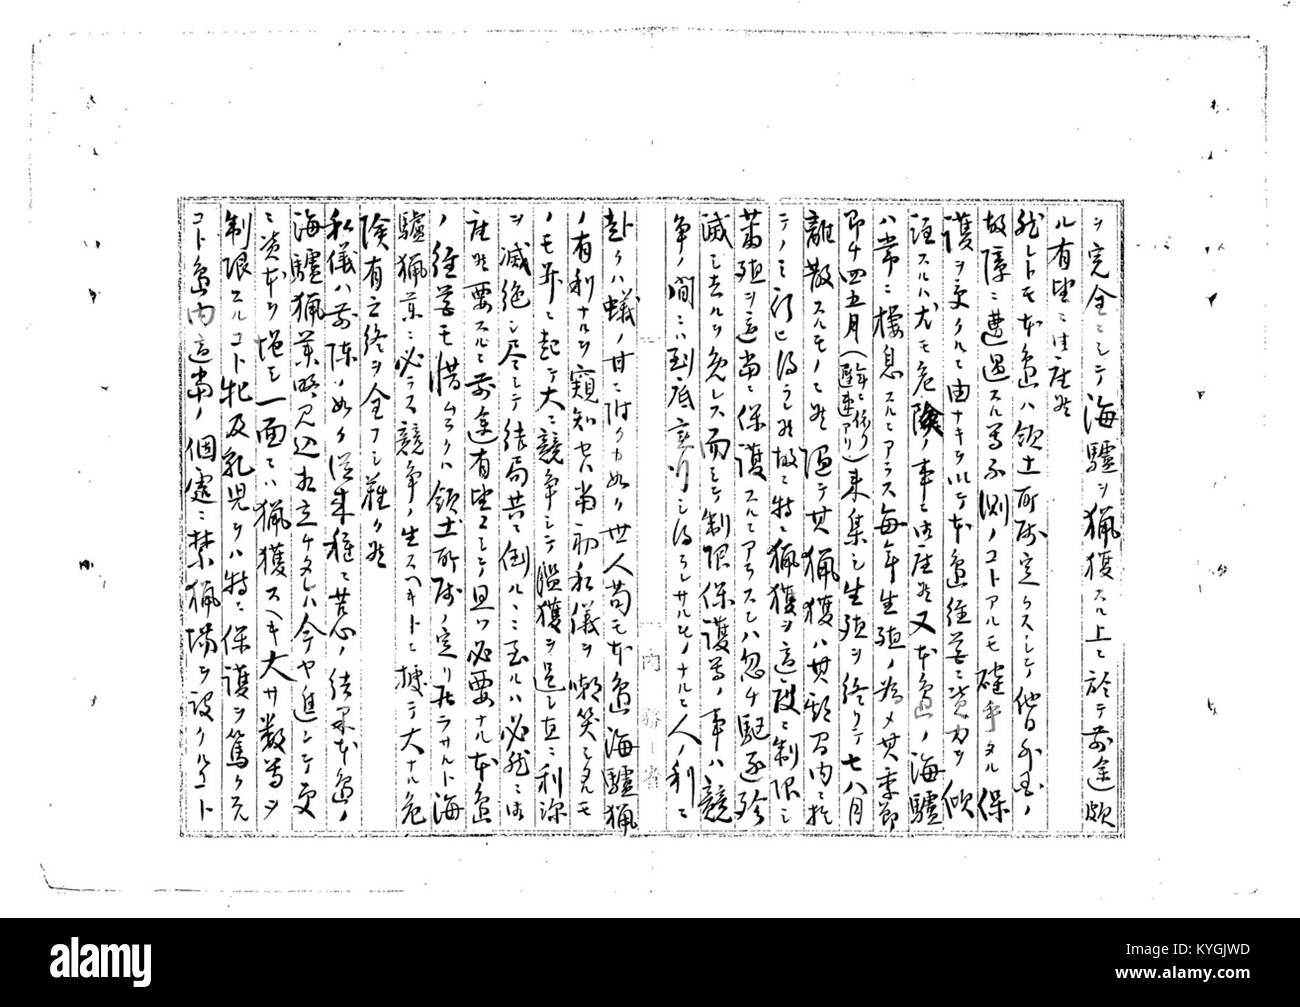 ヲ完全ニシテ海驢ヲ猟獲スル上ニ於テ前途頗
ル有望ニ御座候
然レトモ本島ハ領土所属定ラスシテ他日外国ノ
故障ニ遭遇スル等不測ノコトアルモ確乎タル保
護ヲ受クルニ由ナキヲ以テ本島経営ニ資力ヲ傾
注スルハ尤モ危険ノ事ニ御座候又本島ノ海驢
ハ常ニ棲息スルニアラス毎年生殖ノ為メ其季節
即チ四五月(年ニ依リ遅速アリ)来集シ生殖ヲ終リテ七八月
離散スルモノニ候随テ其猟獲ハ其期間内ニ於
テノミ行ヒ得ラレ候故ニ特ニ猟獲ヲ適度ニ制限シ
蕃殖ヲ適当ニ保護スルニアラスンハ忽チ駆逐殄
滅シ去ルヲ免レス而シテ制限保護等ノ事ハ競
争ノ間ニハ到底実行シ得ラレサルモノナルニ人ノ利ニ
赴クハ蟻ノ甘ニ附クカ如ク世人苟モ本島海驢猟
ノ有利ナルヲ窺知セハ当初私儀ヲ嘲笑シタルモ
ノモ並ヒ起テ大ニ競争シテ濫獲ヲ逞シ直ニ利源
ヲ滅絶シ尽シテ結局共ニ倒ルヽニ至ルハ必然ニ御
座候要スルニ前途有望ニシテ且ツ必要ナル本島
ノ経営モ惜ムラクハ領土所属ノ定リ居ラサルト海
驢猟業ニ必ラス競争ノ生スヘキトニ據テ大ナル危
険有之終ヲ全フシ難ク候
私儀ハ前陳ノ如ク従来種々苦心ノ結果本島ノ
海驢猟業略見込相立ケタレハ今ヤ進シテ更
ニ資本ヲ増シ一面ニハ猟獲スヘキ大サ数等ヲ
制限スルコト牝及乳児ヲハ特ニ保護ヲ篤クスル
コト島内適当ノ個処ニ禁猟場ヲ設クルコト
内務省
KYGJWD
alamy
a
Image ID: KYGJWD
www.alamy.com